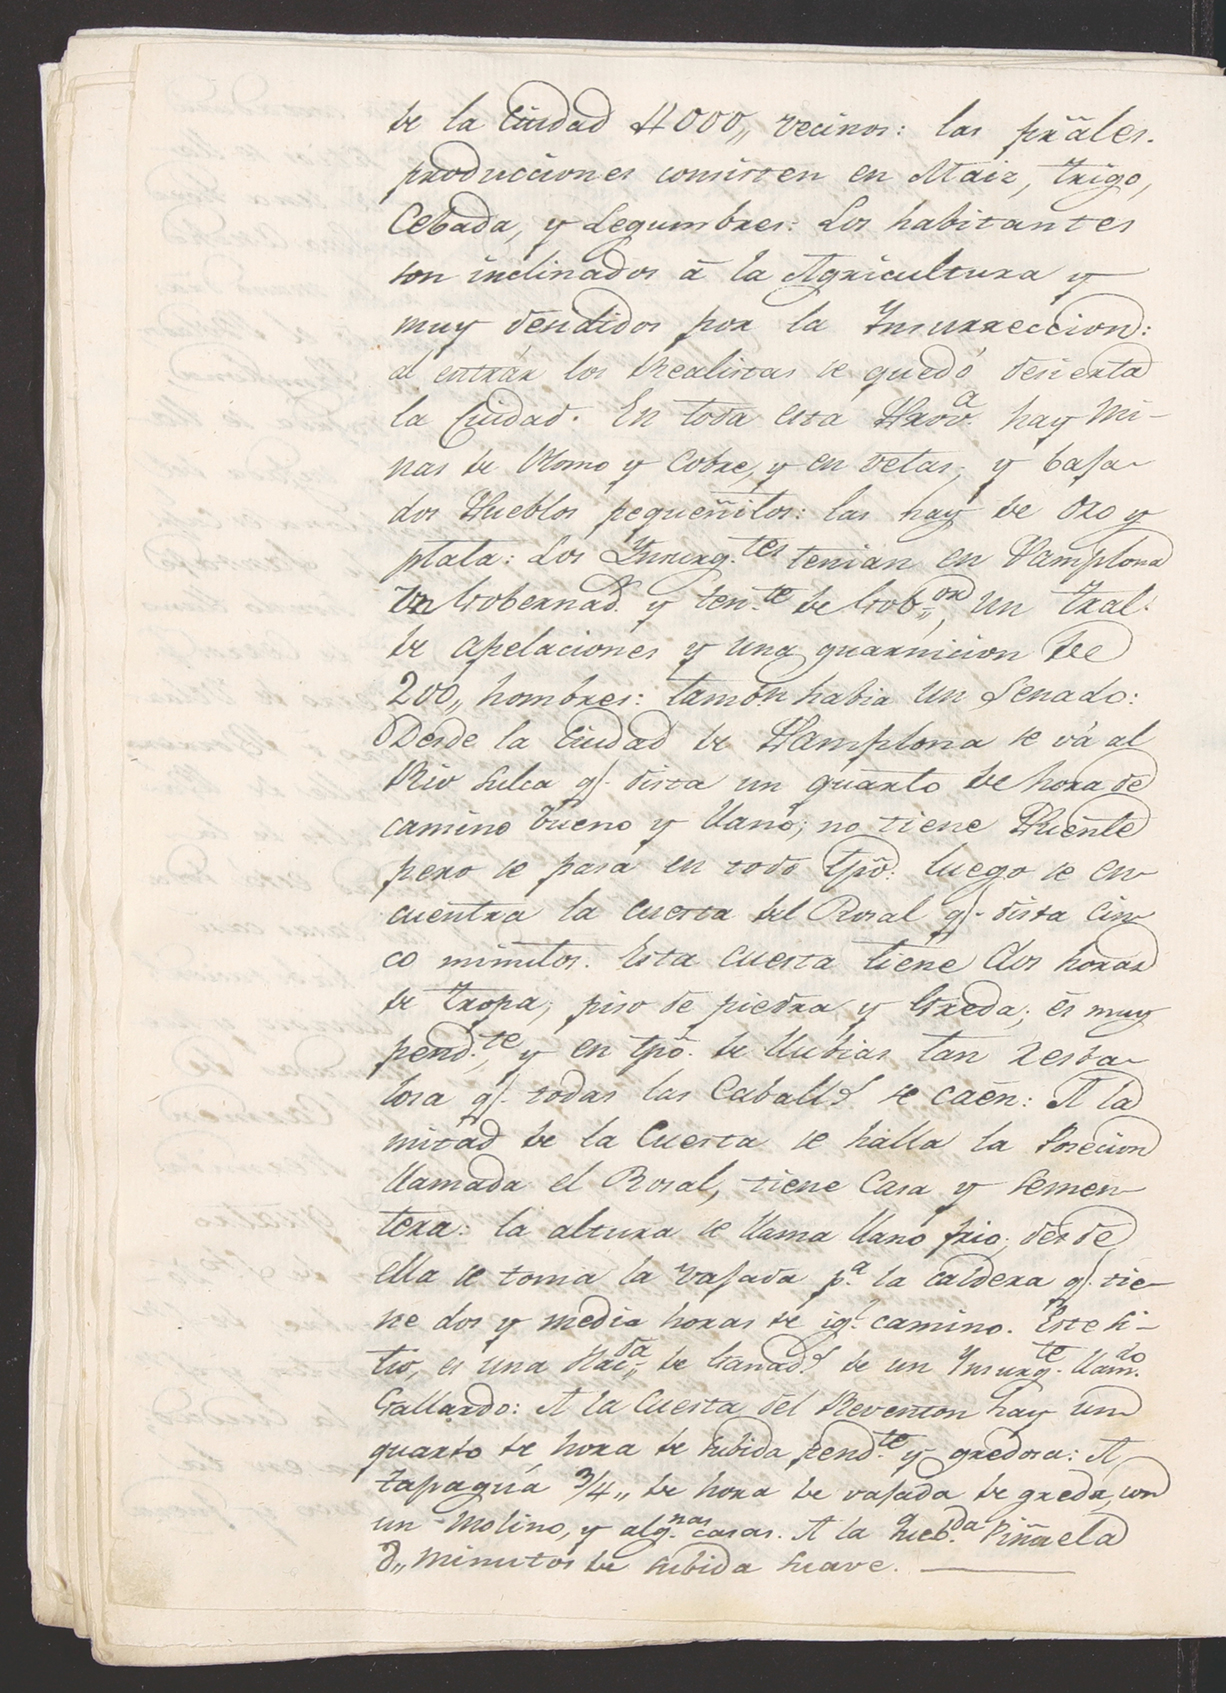 de la Ciudad 4000,, vecinos: las prāles.
producciones consisten en Maiz, trigo,
Cebada, y Legumbres: Los habitantes
son inclinados á la Agricultura y
muy déndidos por la Insurreccion:
al entrár los Realistas se quedó desierta
la Ciudad. En toda esta Prov.ª hay Mi-
nas de Plomo y Cobre, y en vetas, y baja-
dos Pueblos pequeñitos: las hay de Oro y
plata: Los Insurg.tes tenian en Pamplona
Un Gobernad.r y ten.te de Gob,,or, un tral.
de apelaciones y una guarnicion de
200,, hombres: tambn habia un Senado:
Desde la Ciudad de Pamplona se vá al
Rio Sulca q.e dista un quarto de hora de
camino bueno y llano; no tiene Puente
pero se pasa en todo tpō: luego se en-
cuentra la cuesta del Rosal q.e dista cin-
co minutos. Esta cuesta tiene dos horas
de tropa; piso de piedra y Greda; és muy
pend.te, y en tpō. de llubias tan resba-
losa q.e todas las Caball.s se caén: A la
mitad de la Cuesta se halla la Posecion
llamada el Rosal, tiene Casa y semen-
tera: la altura se llama llano frio; desde
ella se toma la vajada p.ª la caldera q.e tie-
ne dos y media horas de ig.l camino. Este si-
tio, es una Haci,,da de Ganad.s de un Insurg.te llam.do
Gallardo: A la Cuesta del Reventon hay un
quarto de hora de subida pend.te y gredosa: A
tapagúa 3/4,, de hora de vajada de greda, con
un Molino, y alg.nas casas. A la Queb.da Piñuela
8,, minutos de subida suave.